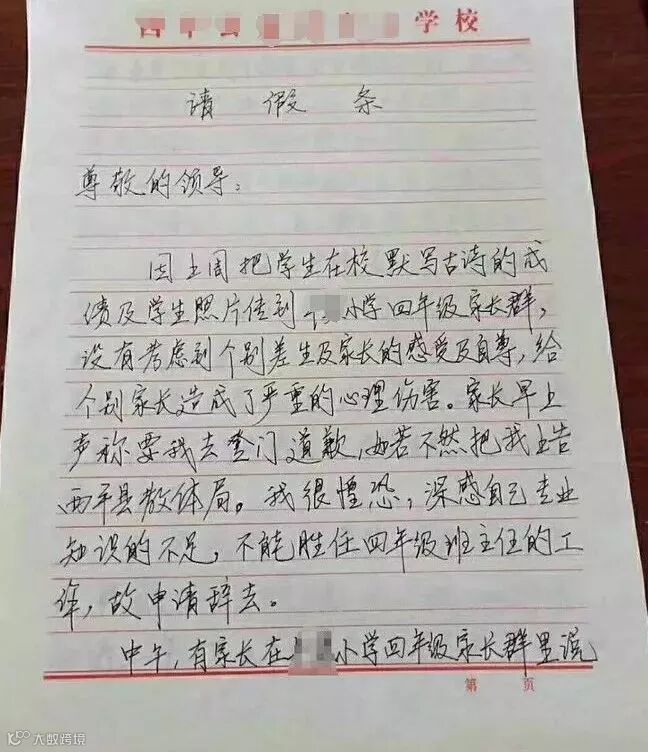 学校
请假条
尊敬的领导：
因上周把学生在校默写古诗的成
绩及学生照片传到小学四年级家长群，
没有考虑到个别差生及家长的感受及自尊，给
个别家长造成了严重的心理伤害。家长早上
声称要我去登门道歉，如若不然把我上告
西平县教体局。我很惶恐，深感自己专业
知识的不足，不能胜任四年级班主任的工
作，故申请辞去。
中午，有家长在小学四年级家长群里说
第 页
大数跨境